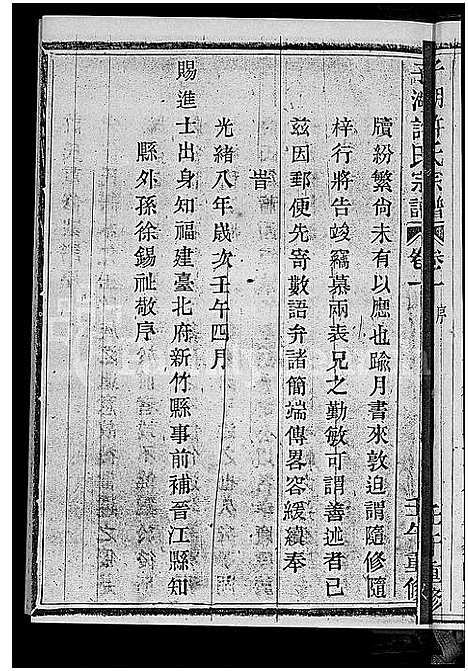 牘紛繁尙未有以應也踰月書來敦迫謂隨修隨
梓行將告竣竊慕兩表兄之勤敏可謂善述者已
茲因郵便先寄數語弁諸簡端傳畧容緩續奉
旹
光緒八年歲次壬午四月
賜進士出身知福建臺北府新竹縣事前補晉江縣知
縣外孫徐錫祉敬序
平湖許氏宗譜
卷一
序
壬午重修